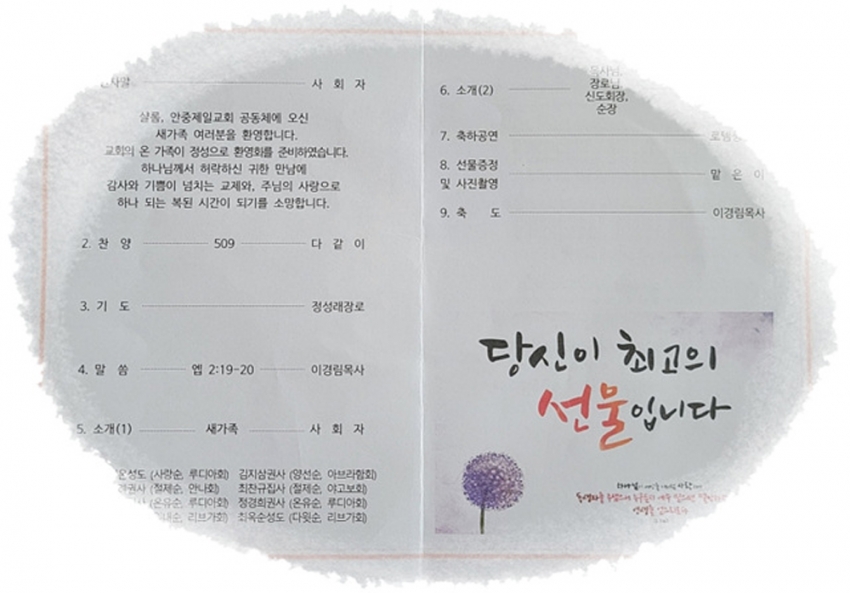 사 회 자
샬롬, 안중제일교회 공동체에 오신
새가족 여러분을 환영합니다.
교회의 온 가족이 정성으로 환영회를 준비하였습니다.
하나님께서 허락하신 귀한 만남에
감사와 기쁨이 넘치는 교제와, 주님의 사랑으로
하나 되는 복된 시간이 되기를 소망합니다.
2. 찬 양 509 다 같 이
3. 기 도 정성래장로
4. 말 씀 엡 2:19-20 이경림목사
5. 소개(1) 새가족 사 회 자
(사랑순, 루디아회) 김지삼권사 (양선순, 아브라함회)
(절제순, 안나회) 최찬규집사 (절제순, 야고보회)
(온유순, 루디아회) 정경희권사 (온유순, 루디아회)
리브가회) 최옥순성도 (다윗순, 리브가회)
목사님,
장로님,
6. 소개(2) 신도회장,
순장
7. 축하공연
8. 선물증정
및 사진촬영 맡 은 이
9. 축 도 이경림목사
당신이 최고의
선물입니다